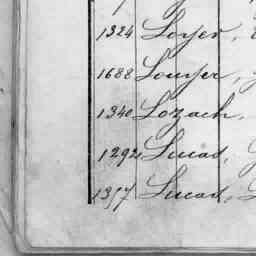 1324 Loyer,
1688 Louyer,
1340 Lozach,
1292 Lucas,
1357 Lucas,